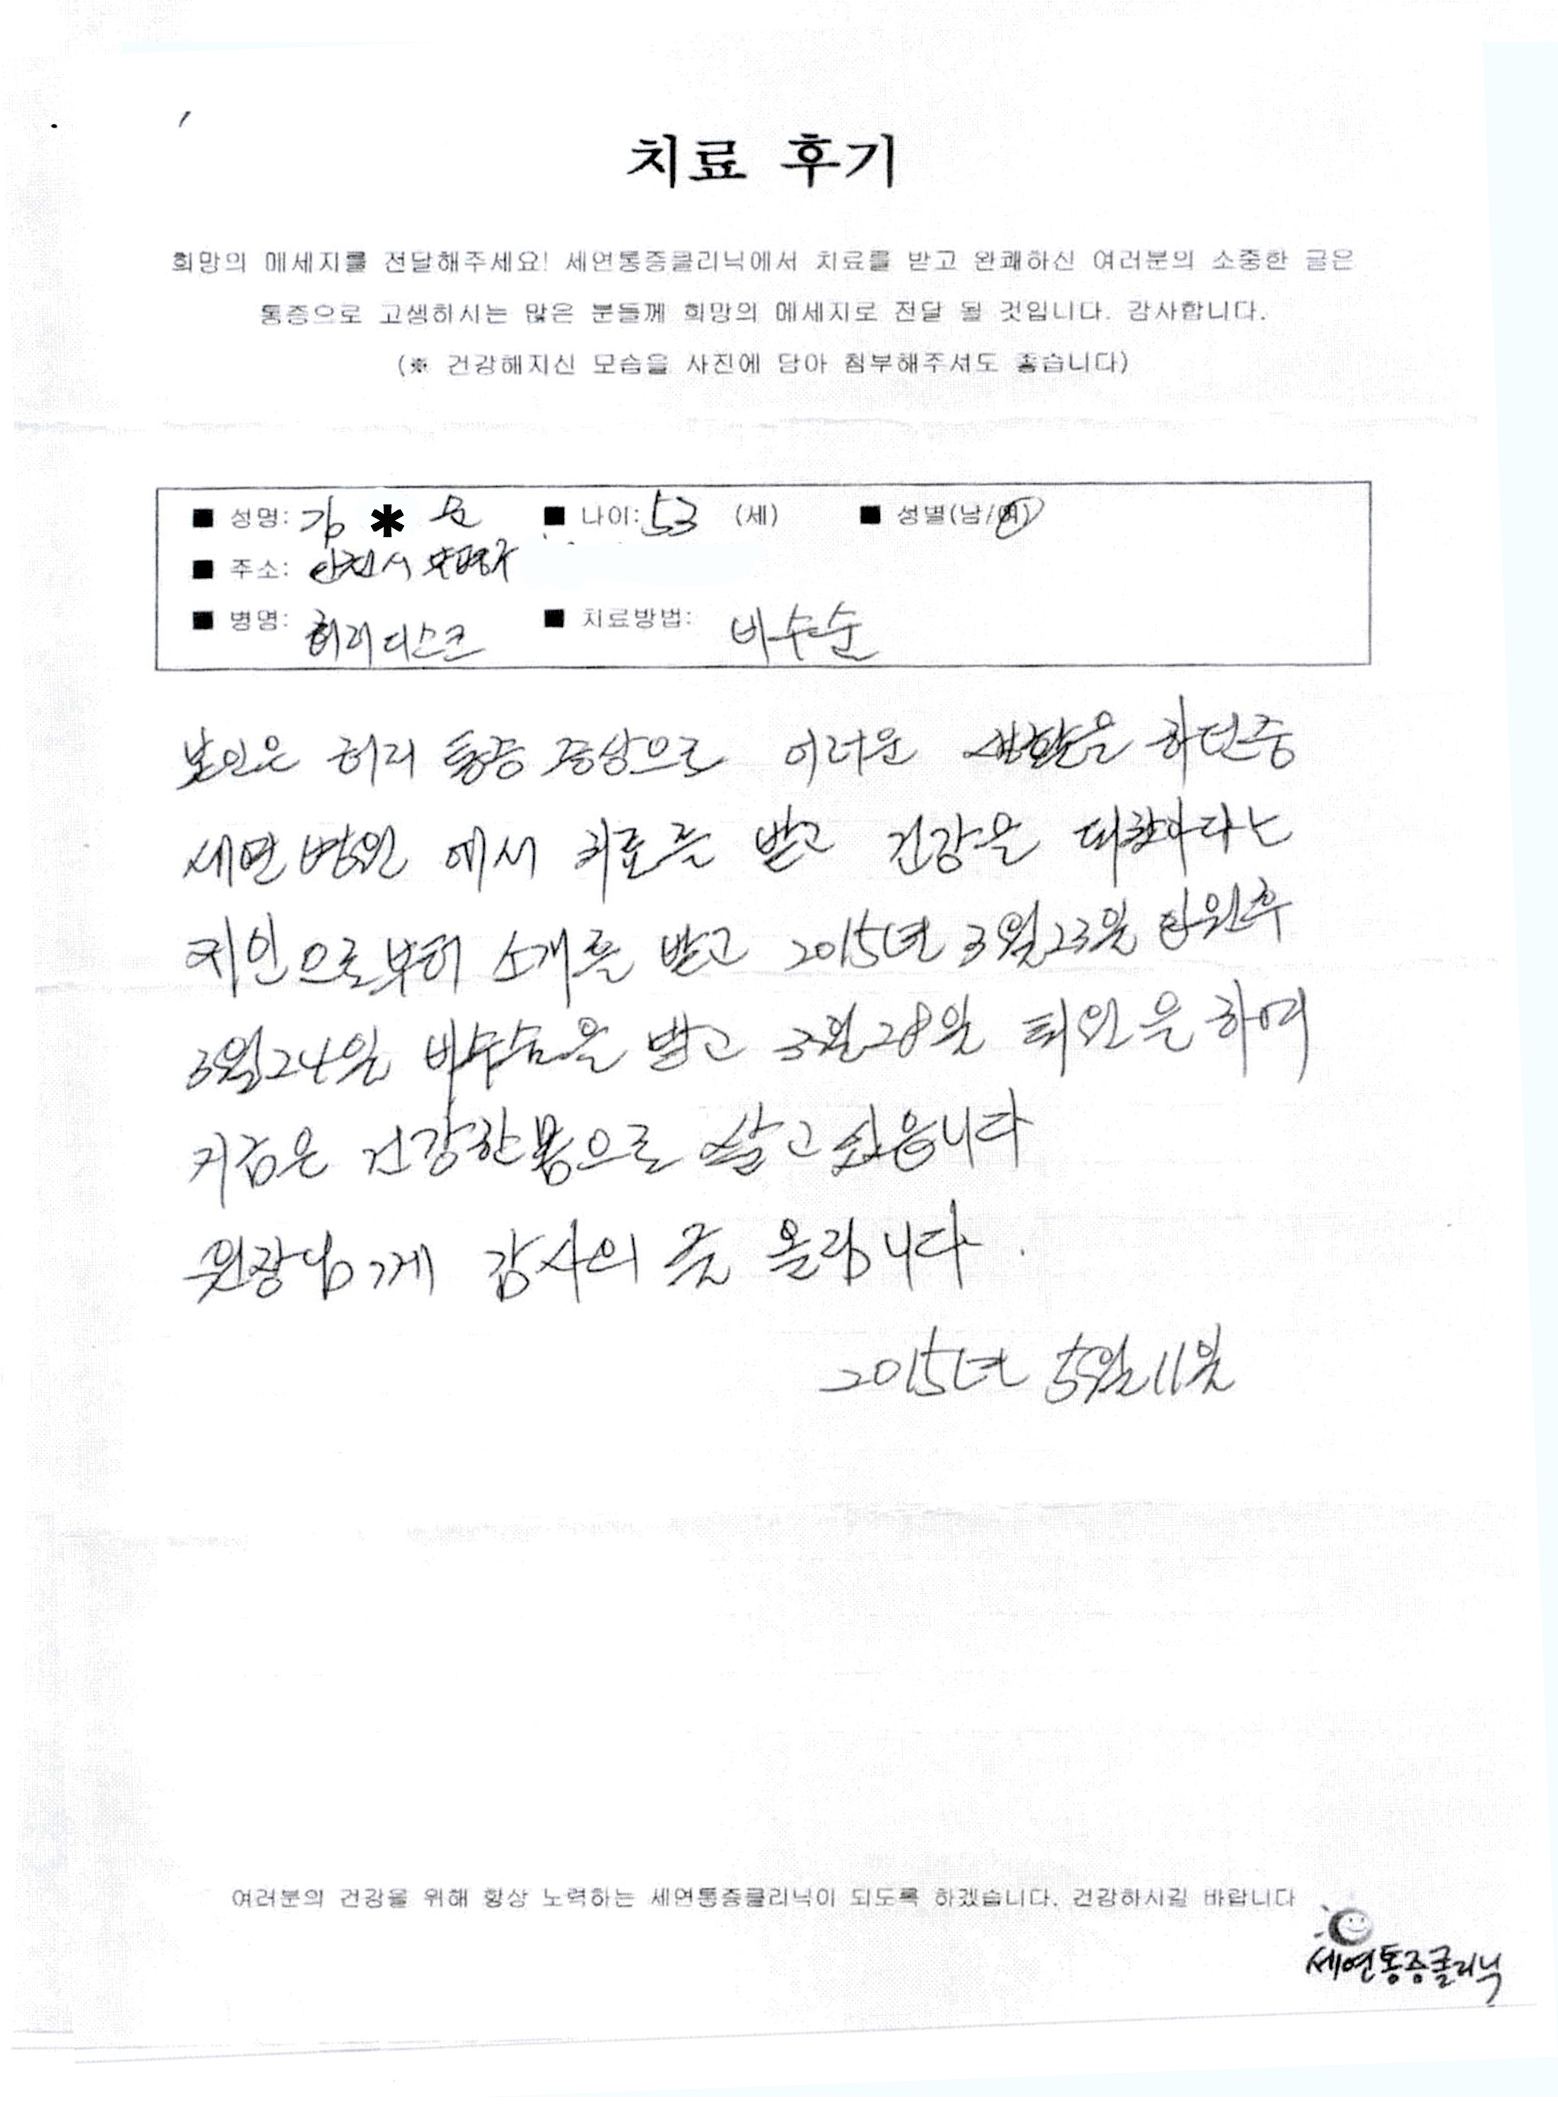 치료 후기
희망의 메세지를 전달해주세요! 세연통증클리닉에서 치료를 받고 완쾌하신 여러분의 소중한 글은
통증으로 고생하시는 많은 분들께 희망의 메세지로 전달 될 것입니다. 감사합니다.
(※ 건강해지신 모습을 사진에 담아 첨부해주셔도 좋습니다)
■ 성명: 김 * 문 ■ 나이: 53 (세) ■ 성별(남/여)
■ 주소: 인천시 부평구
■ 병명: 허리디스크 ■ 치료방법: 비수술
본인은 허리 통증 증상으로 어려운 생활을 하던중
세연병원 에서 치료를 받고 건강을 되찾아다는
지인으로부터 소개를 받고 2015년 3월23일 입원후
3월24일 비수술을 받고 3월28일 퇴원을 하며
지금은 건강한몸으로 살고 있읍니다
원장님께 감사의 글 올림니다.
2015년 5월11일
여러분의 건강을 위해 항상 노력하는 세연통증클리닉이 되도록 하겠습니다. 건강하시길 바랍니다
세연통증클리닉